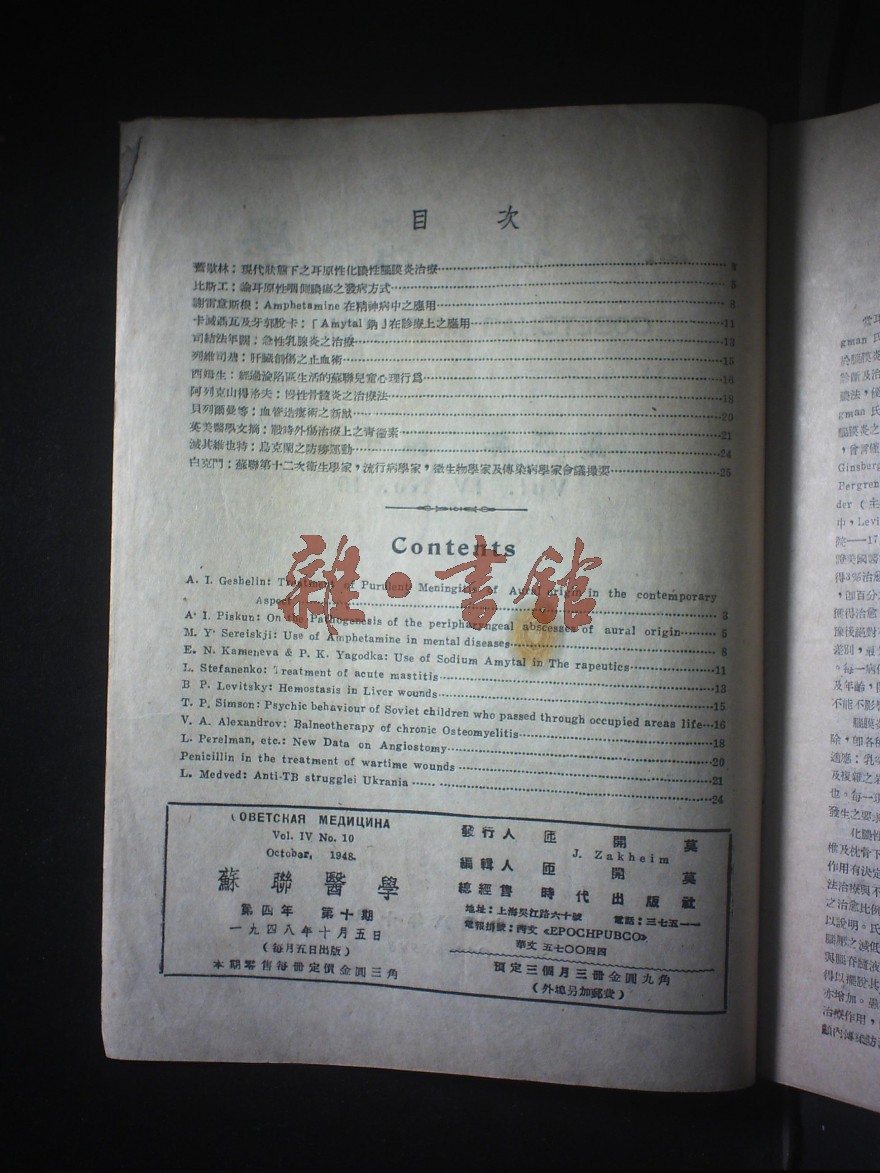 目 次
現代狀態下之耳原性化膿性腦膜炎治療…3
比斯工：論耳原性咽側膿瘍之發病方式…5
謝雷意斯根：Amphetamine 在精神病中之應用…8
卡滅湼瓦及牙郭脫卡：「Amytal 鈉」在診療上之應用…11
司結法年闊：急性乳腺炎之治療…13
列維司基：肝臟創傷之止血術…15
西姆生：經過淪陷區生活的蘇聯兒童心理行爲…16
阿列克山得洛夫：慢性骨髓炎之治療法…18
貝列爾曼等：血管造瘻術之新献…20
英美醫學文摘：戰時外傷治療上之青黴素…21
滅其維也特：烏克蘭之防癆運動…24
白克門：蘇聯第十二次衛生學家，流行病學家，微生物學家及傳染病學家會議撮要…25
Contents
A. I. Geshelin: Treatment of Purulent Meningitis of Aural origin in the contemporary
Aspect…3
A. I. Piskun: On the Pathogenesis of the peripharyngeal abscesses of aural origin…5
M. Y. Sereiskji: Use of Amphetamine in mental diseases…8
E. N. Kameneva & P. K. Yagodka: Use of Sodium Amytal in The rapeutics…11
L. Stefanenko: Treatment of acute mastitis…13
B P. Levitsky: Hemostasis in Liver wounds…15
T. P. Simson: Psychic behaviour of Soviet children who passed through occupied areas life…16
V. A. Alexandrov: Balneotherapy of chronic Osteomyelitis…18
L. Perelman, etc.: New Data on Angiostomy…20
Penicillin in the treatment of wartime wounds…21
L. Medved: Anti-TB strugglei Ukrania…24
ОВЕТСКАЯ МЕДИЦИНА
Vol. IV No. 10
October, 1948.
蘇聯醫學
第四年 第十期
一九四八年十月五日
（每月五日出版）
本期零售每冊定價金圓三角
發行人 匝開莫
J. Zakheim
編輯人 匝開莫
總經售 時代出版社
地址：上海吳江路六十號 電話：三七五一一
電報掛號：西文《EPOCHPUBCO》
華文 五七〇〇四四
預定三個月三冊金圓九角
（外埠另加郵費）
雜·書館